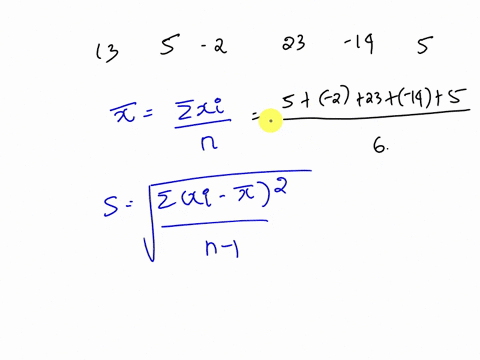 13 5 -2 23 -19 5
x̄ = Σxi / n = 5 + (-2) + 23 + (-19) + 5 / 6.
S = √(Σ(xi - x̄)² / n-1)